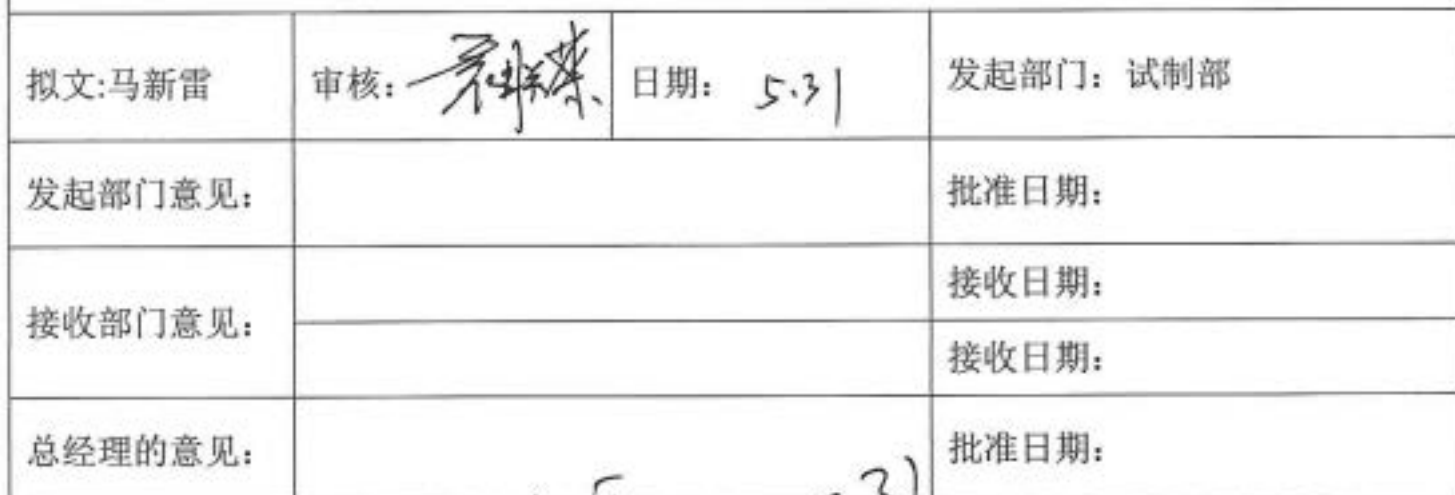 拟文:马新雷
审核：
日期： 5.31
发起部门：试制部
发起部门意见：
批准日期：
接收部门意见：
接收日期：
接收日期：
总经理的意见：
批准日期：